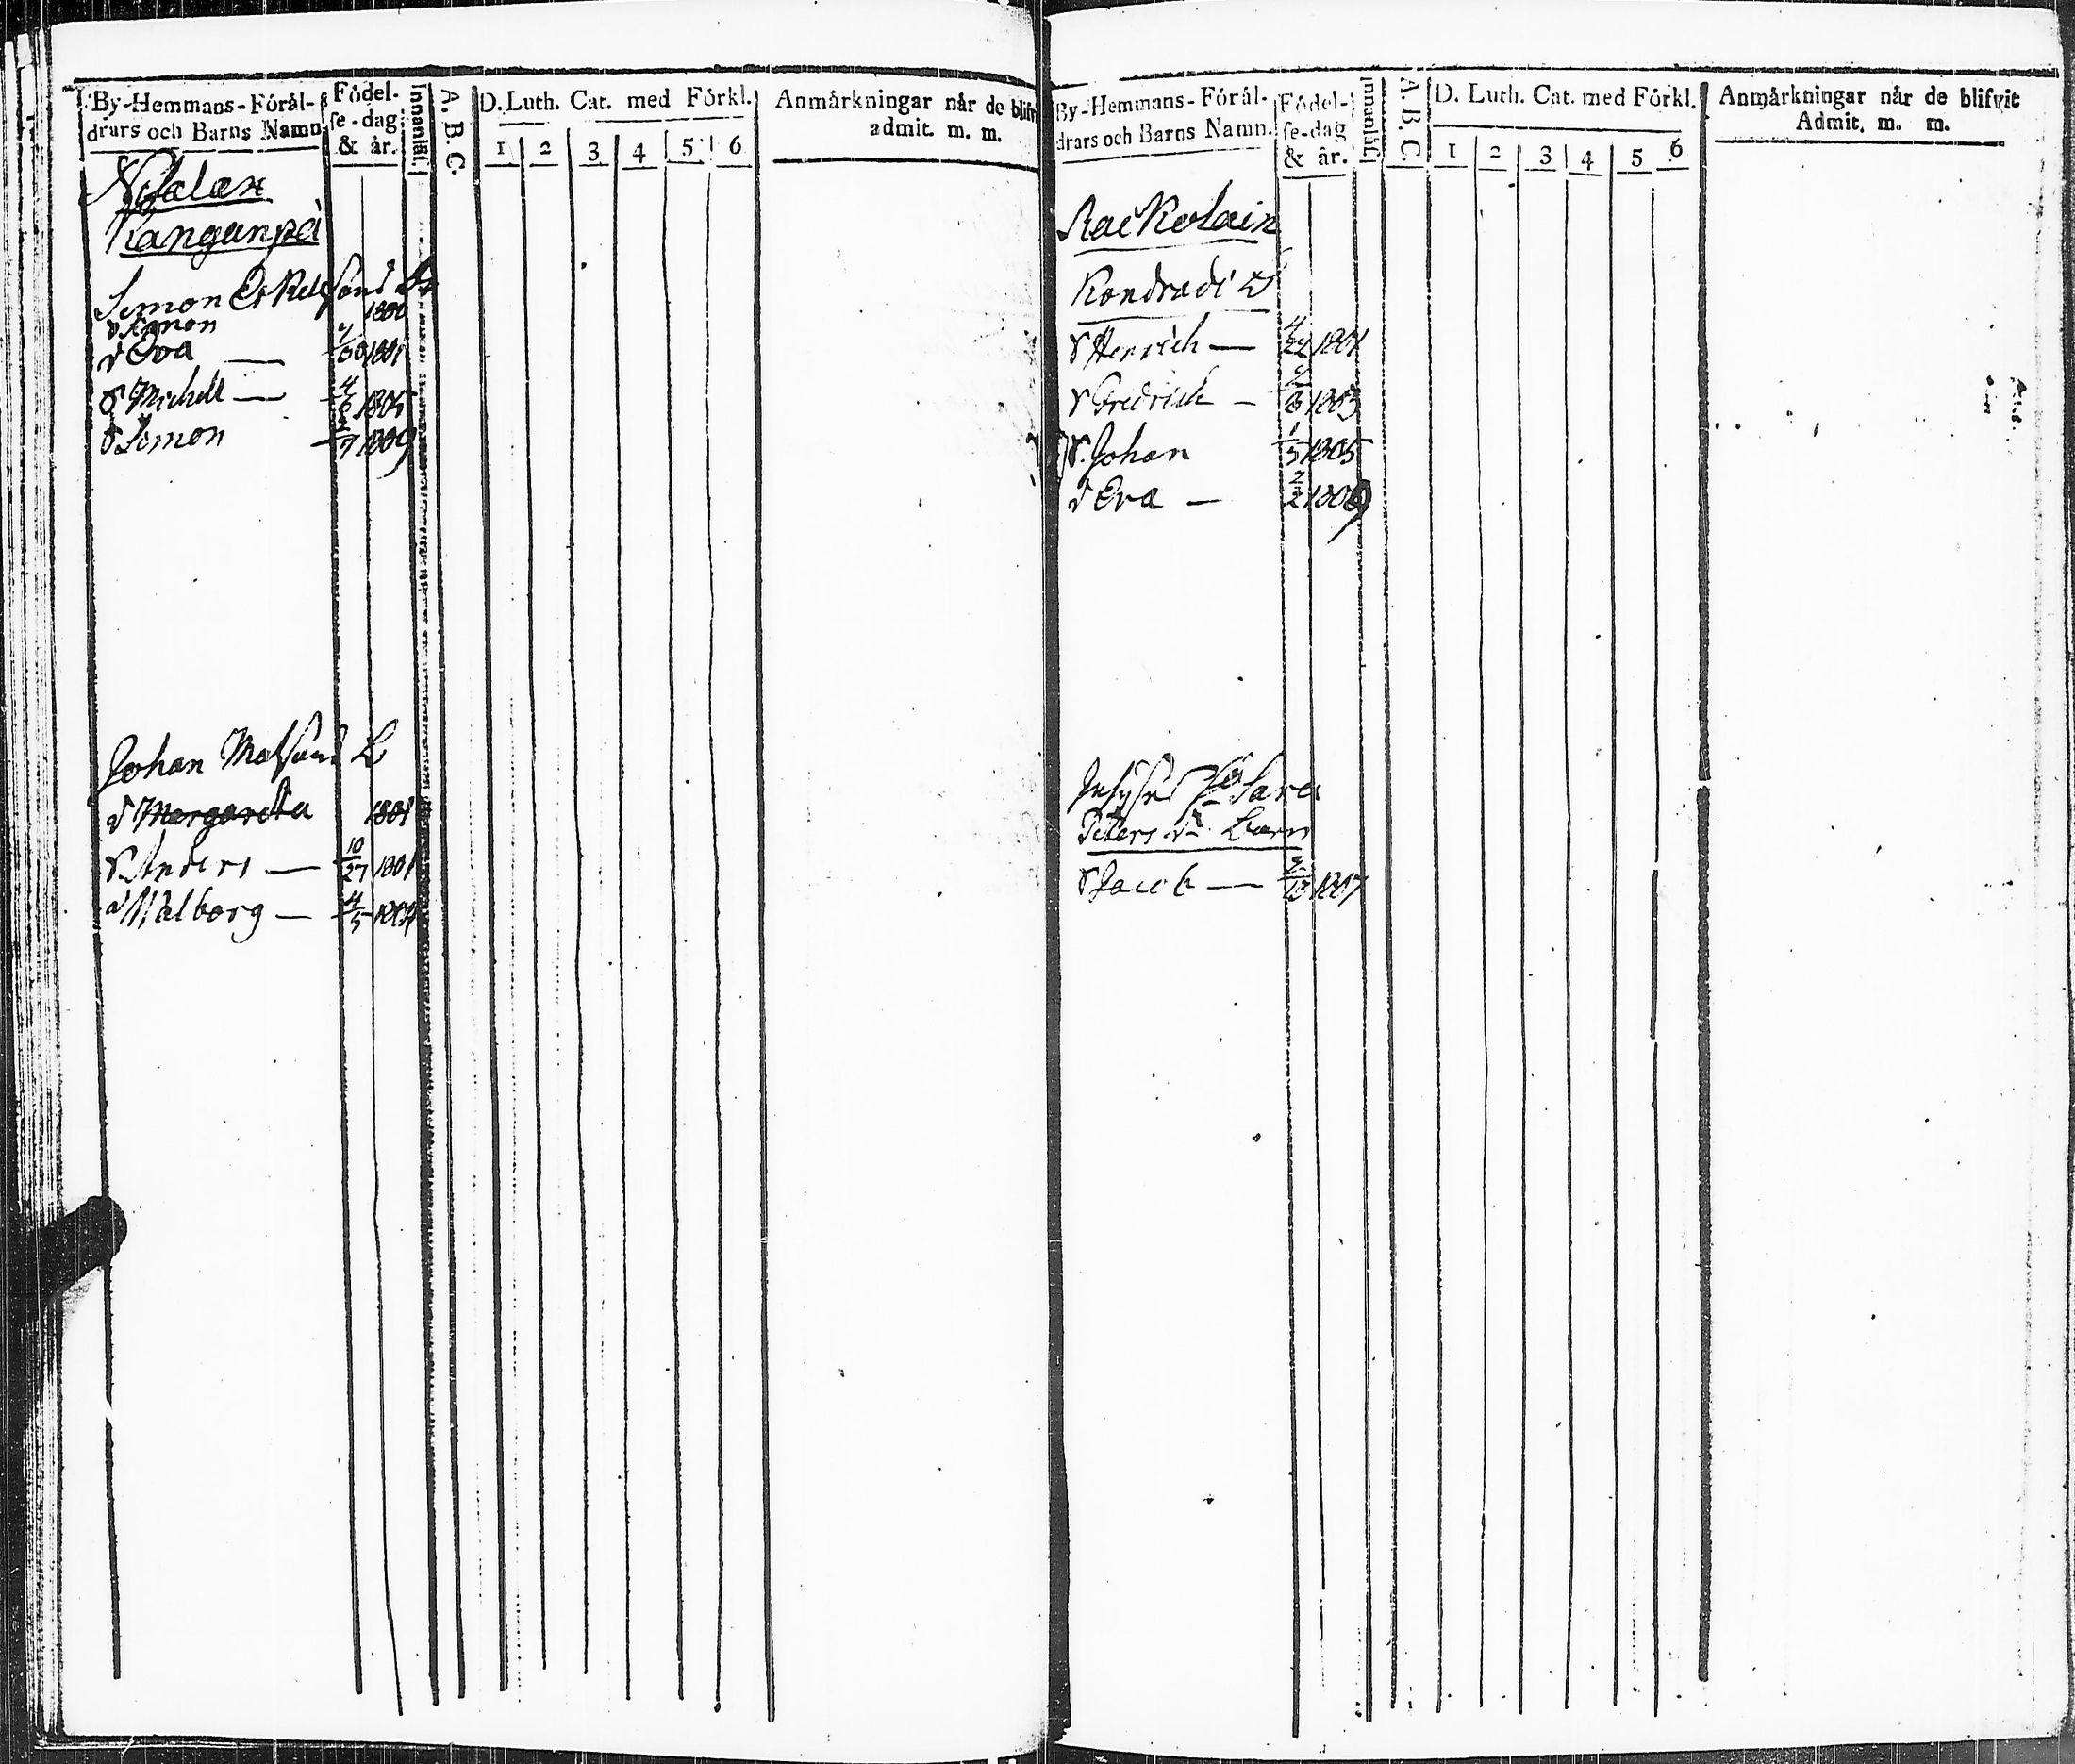 By-Hemmans-Föräl-
drars och Barns Namn.
Födel-
se-dag
& år.
Innanläs.
A. B. C.
D. Luth. Cat. med Förkl.
1 2 3 4 5 6
Anmärkningar när de blifv
admit. m. m.
Kangunpä
Simon
1800
d Eva — 1801
S Michell — 4/6 1805
S Simon 1809
Johan Matssons B
d Margareta 1801
S Anders — 10/27 1801
d Walborg — 4/5 1804
By-Hemmans-Föräl-
drars och Barns Namn.
Födel-
se-dag
& år.
Innanläs.
A. B. C.
D. Luth. Cat. med Förkl.
1 2 3 4 5 6
Anmärkningar när de blifvit
Admit. m. m.
S Henrich — 1801
S Fredrich — 1803
S. Johan 1/5 1805
d Eva — 2/2 1809
Peters Barn
S Jacob — 1807